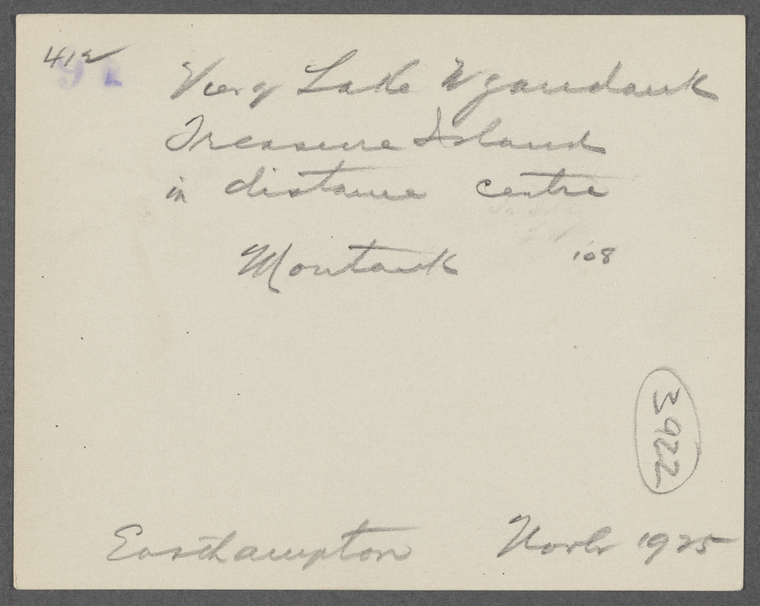 412
91
View of Lake Wyandank
Treasure Island
in distance centre
Montauk '08
3922
Easthampton Novbr 1925